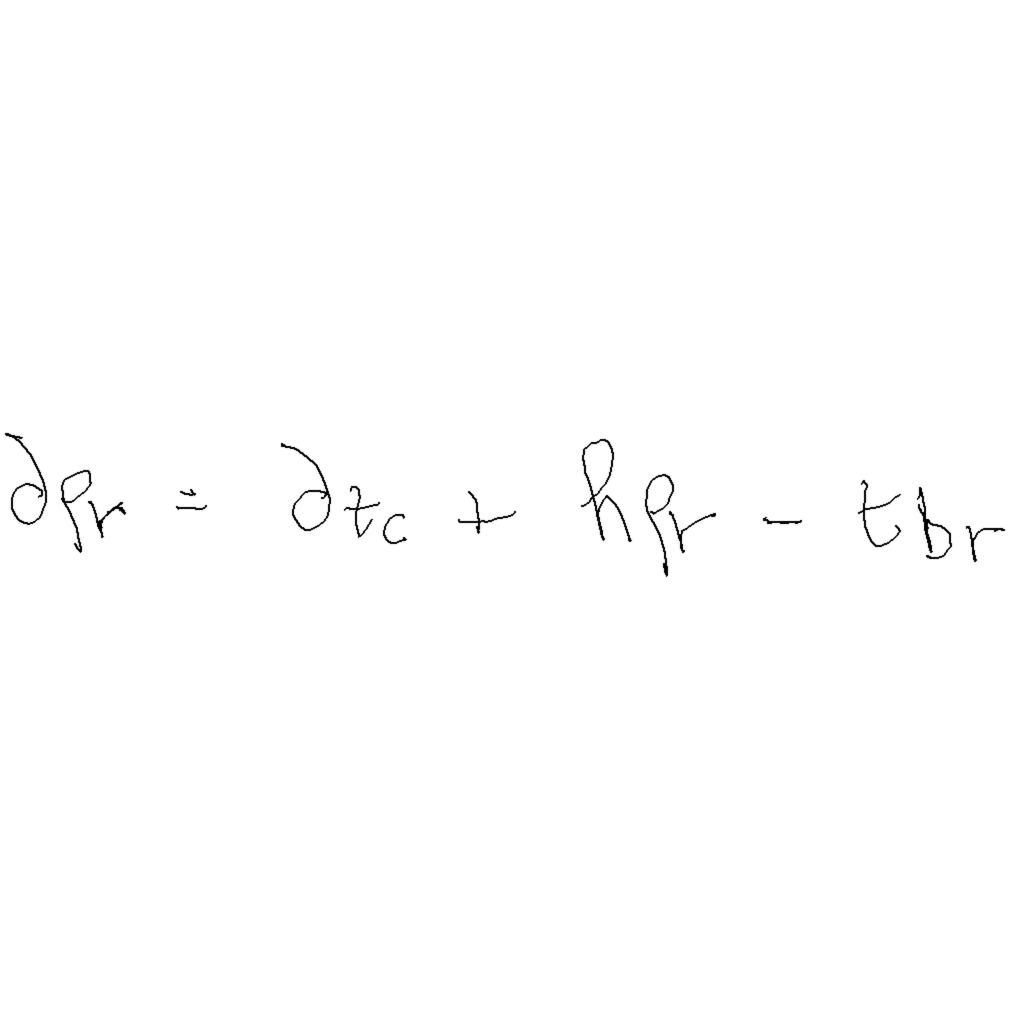 ∂ρ_r = ∂t_c + hρ_r - t b_r